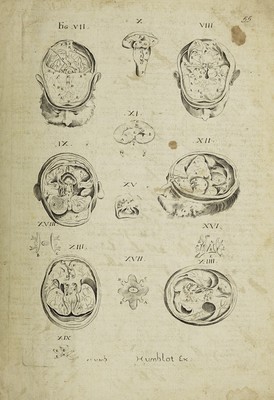 Fig VII.
X
VIII.
XI.
IX
XII.
XV
XVIII
XVI.
XIII.
XVII
XIIII
XIX
Humblot Ex.